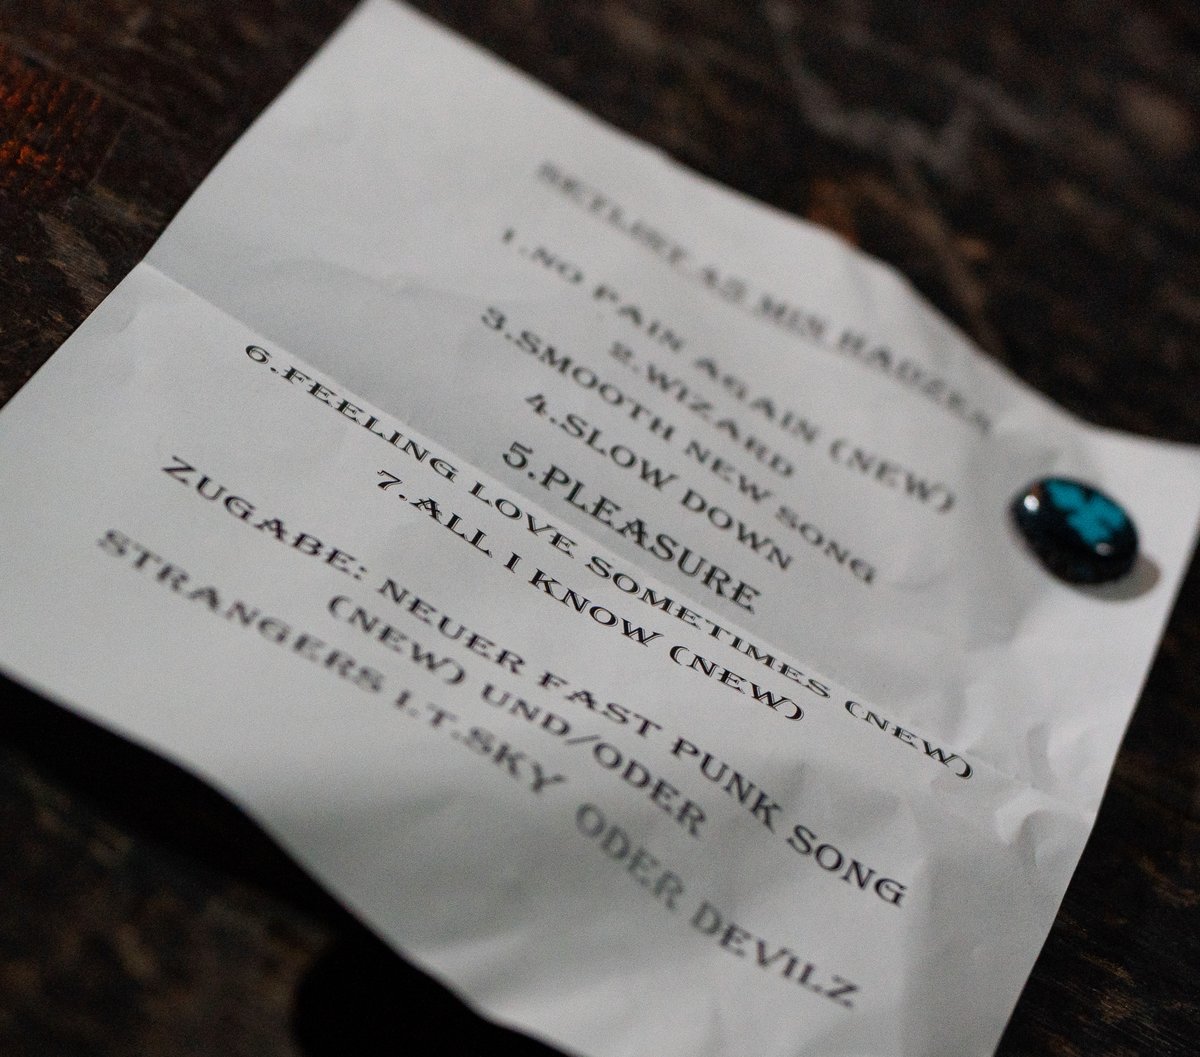 SETLIST AS MIN
1.NO PAIN AGAIN (NEW)
2.WIZARD
3.SMOOTH NEW SONG
4.SLOW DOWN
5.PLEASURE
6.FEELING LOVE SOMETIMES (NEW)
7.ALL I KNOW (NEW)
ZUGABE: NEUER FAST PUNK SONG
(NEW) UND/ODER
STRANGERS I.T.SKY ODER DEVILZ